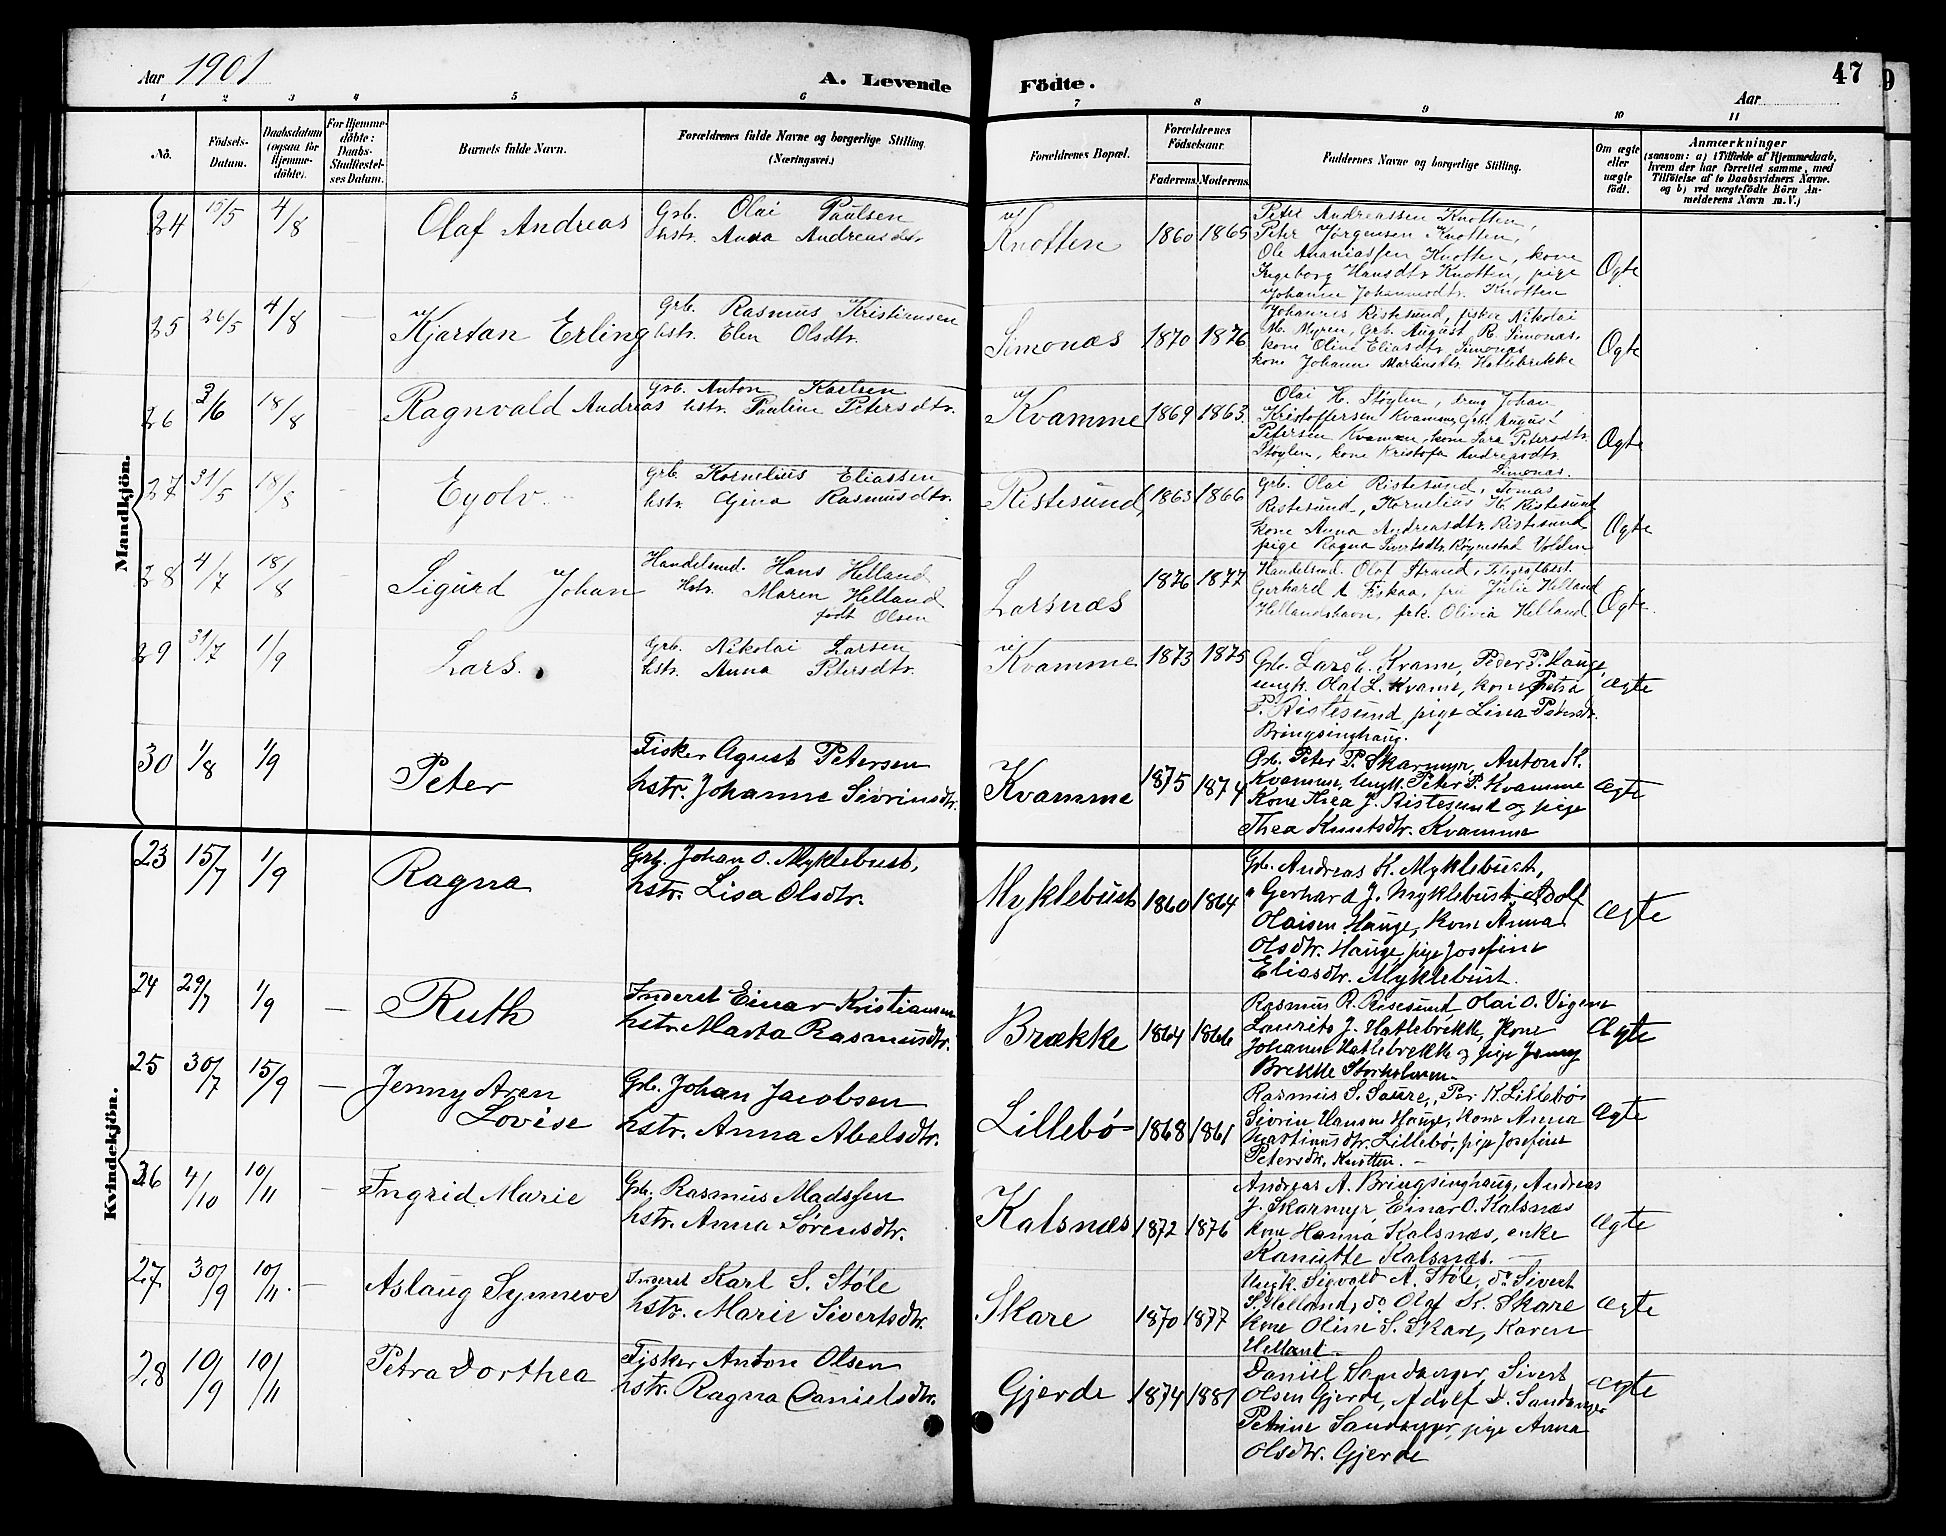 Aar 1901
A. Levende
Födte.
Aar
47
1 2 3 4 5 6 7 8 9 10 11
No.
Födsels-Datum.
Daabsdatum (ogsaa for Hjemme-döbte).
For Hjemme-döbte: Daabs-Stadfæstel-ses Datum.
Barnets fulde Navn.
Forældrenes fulde Navne og borgerlige Stilling. (Næringsvei.)
Forældrenes Bopæl.
Forældrenes Födselsaar.
Faderens. Moderens.
Faddernes Navne og borgerlige Stilling.
Om ægte eller uægte födt.
Anmærkninger
(saasom: a) i Tilfælde af Hjemmedaab, hvem der har forrettet samme, med Tilföielse af to Daabsvidners Navne. og b) ved uægtefödte Börn An-melderens Navn m. V.)
Mandkjön.
24 15/5 4/8 Olaf Andreas
Grb. Olai Paulsen
hstr. Anna Andreasdtr
Knotten 1860 1865
Peter Andreassen Knotten,
Peter Jørgensen Knotten,
Ole Ananiassen Knotten, kone
Ingeborg Hansdtr Knotten, pige
Johanne Johannesdtr. Knotten
Ægte
25 26/5 4/8 — Kjartan Erling
Grb. Rasmus Kristiansen
hstr. Elen Olsdtr.
Simonæs 1870 1876
Johannes Ristesund, fisker Nikolai
M. Myren, Grb. August R. Simonæs,
kone Oline Eliasdtr Simonæs
kone Johanne Martinsdtr. Hatlebrekke
Ægte
26 3/6 18/8 — Ragnvald Andreas
Grb. Anton Karlsen
hstr. Pauline Petersdtr.
Kvamme 1869 1863.
Olai H. Støylen, dreng Johan
Kristoffersen Kvamme, Grb. August
Petersen Kvamme, kone Sara Petersdtr.
Støylen, kone Kristofa Andreasdtr.
Simonæs.
Ægte
27 31/5 18/8 — Eyolv.
Grb. Kornelius Eliassen
hstr. Gjina Rasmusdtr.
Ristesund, 1863 1866
Grb. Olai Ristesund, Tomas
Ristesund, Kornelius K. Ristesund
kone Anna Andreasdtr. Ristesund
pige Ragna Sivertsdtr. Røynestad Volden
Ægte
28 4/7 18/8 — Sigurd Johan
Handelsmd. Hans Helland
Hstr. Maren Helland
født Olsen
Larsnæs 1876 1877
Handelsmd. Olaf Strand, Telegrafbest.
Gerhard A Fiskaa, fru Julie Helland
Hellandshavn, frk. Olivia Helland.
Ægte.
29 31/7 1/9 Lars.
Grb. Nikolai Larsen
hstr. Anna Petersdtr.
Kvamme 1873 1875
Grb. Lars L. Kvame, Peder P. Hauge,
ungk. Olaf L. Kvame, kone Petra
P. Ristesund, pige Lina Petersdtr.
Bringsinghaug.
ægte
30 1/8 1/9 Peter
Fisker Agust Petersen
hstr. Johanne Sivrinsdtr.
Kvamme 1875 1874
Grb. Peter P. Skarmyr, Anton K.
Kvamme, Ungk. Peter P. Kvamme
Kone Thea J. Ristesund og pige
Thea Knutsdtr. Kvamme
ægte
Kvindekjön.
23 15/7 1/9 Ragna
Grb. Johan O. Myklebust,
hstr. Lisa Olsdtr.
Myklebust 1860 1864
Grb. Andreas K. Myklebust,
" Gerhard J. Myklebust, Adolf
Olaisen Hauge, kone Anna
Olsdtr. Hauge, pige Josefine
Eliasdtr. Myklebust.
ægte
24 29/7 1/9 — Ruth
Inderst Einar Kristiansen
hstr. Marta Rasmusdtr.
Brække 1864 1866
Rasmus R. Risesund Olai O. Vigene
Laurits J. Hatlebrekk, Kone
Johanne Hatlebrekke og pige Jenny
Brekke Storholmen.
Ægte
25 30/7 15/9 — Jenny Aren
Lovise
Grb. Johan Jacobsen
hstr. Anna Abelsdtr.
Lillebø 1868 1861
Rasmus S. Saure, Per K. Lillebø
Sivrin Hansen Hauge, Kone Anna
Bastiansdtr. Lillebø, pige Josefine
Petersdtr. Knotten. —
ægte
26 4/10 10/11 — Ingrid Marie
Grb. Rasmus Madssen
hstr. Anna Sørensdtr.
Kalsnæs 1872 1876
Andreas A. Bringsinghaug, Andreas
J. Skarmyr, Einar O. Kalsnæs
kone Hanna Kalsnæs, enke
Kanutte Kalsnæs. —
ægte
27 30/9 10/11. — Aslaug Synneve
Inderst Karl S. Støle
hstr. Marie Sivertsdtr.
Skare 1870 1877
Ungk. Sigvald A. Støle, do Sivert
S. Helland, do Olaf K. Skare
kone Oline S. Skare, Karen
Helland —
ægte
28 10/9 10/11 Petra Dorthea
Fisker Anton Olsen
hstr. Ragna Danielsdtr.
Gjerde 1874 1881
Daniel Sandanger, Sivert
Olsen Gjerde, Adolf D. Sandanger
Petrine Sandanger, pige Anna
Olsdtr. Gjerde
ægte